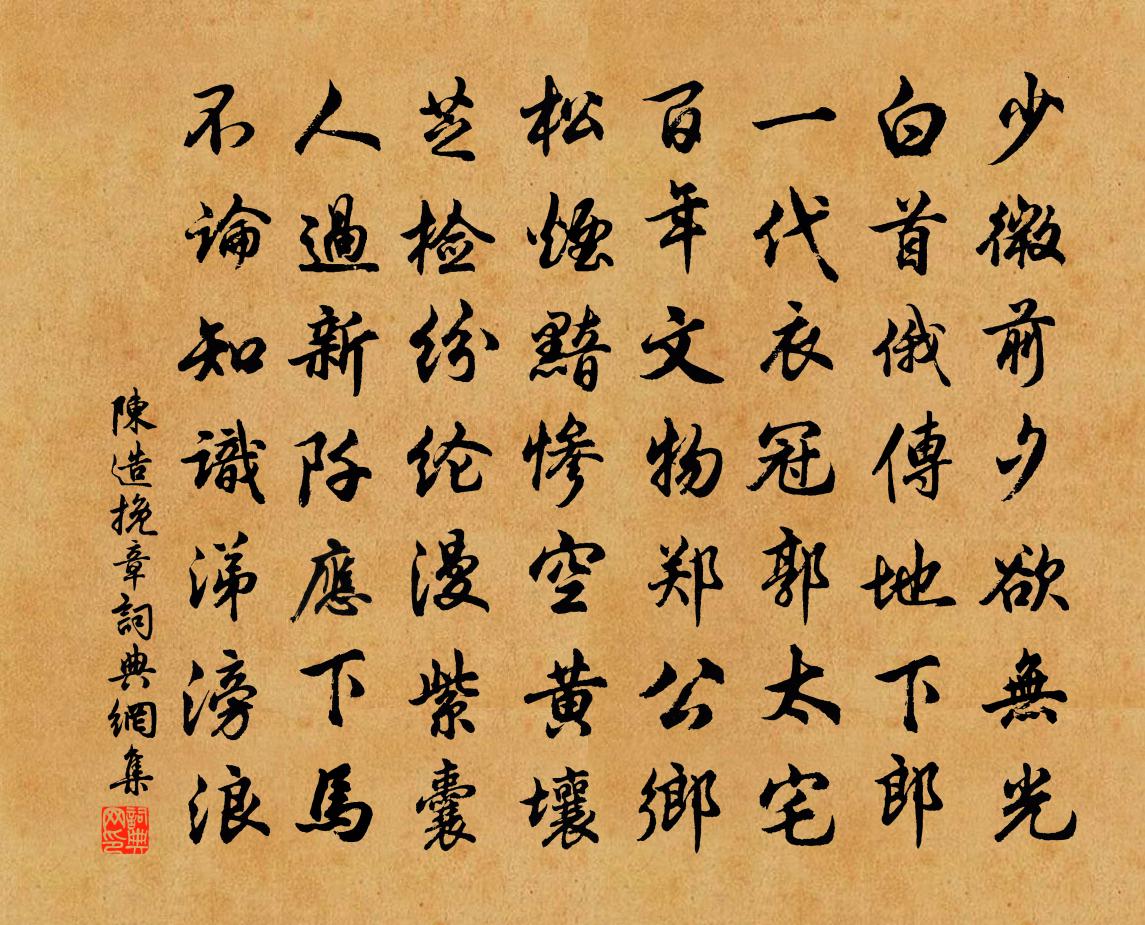 少微前夕欲無光
白首俄傳地下郎
一代衣冠郭太宅
百年文物郑公鄉
松煙黯慘空黃壤
芝檢纷纶漫紫囊
人過新阡應下馬
不論知識涕滂浪
陳造挽章詞典網集
詞典网印